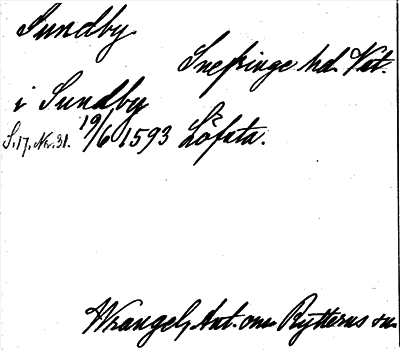 Sundby
Snefringe hd. Vat.
i Sundby
S. 17, Nr. 31. 19/6 1593 Löfsta.
Wrangel, Ant. om Rytterns sn